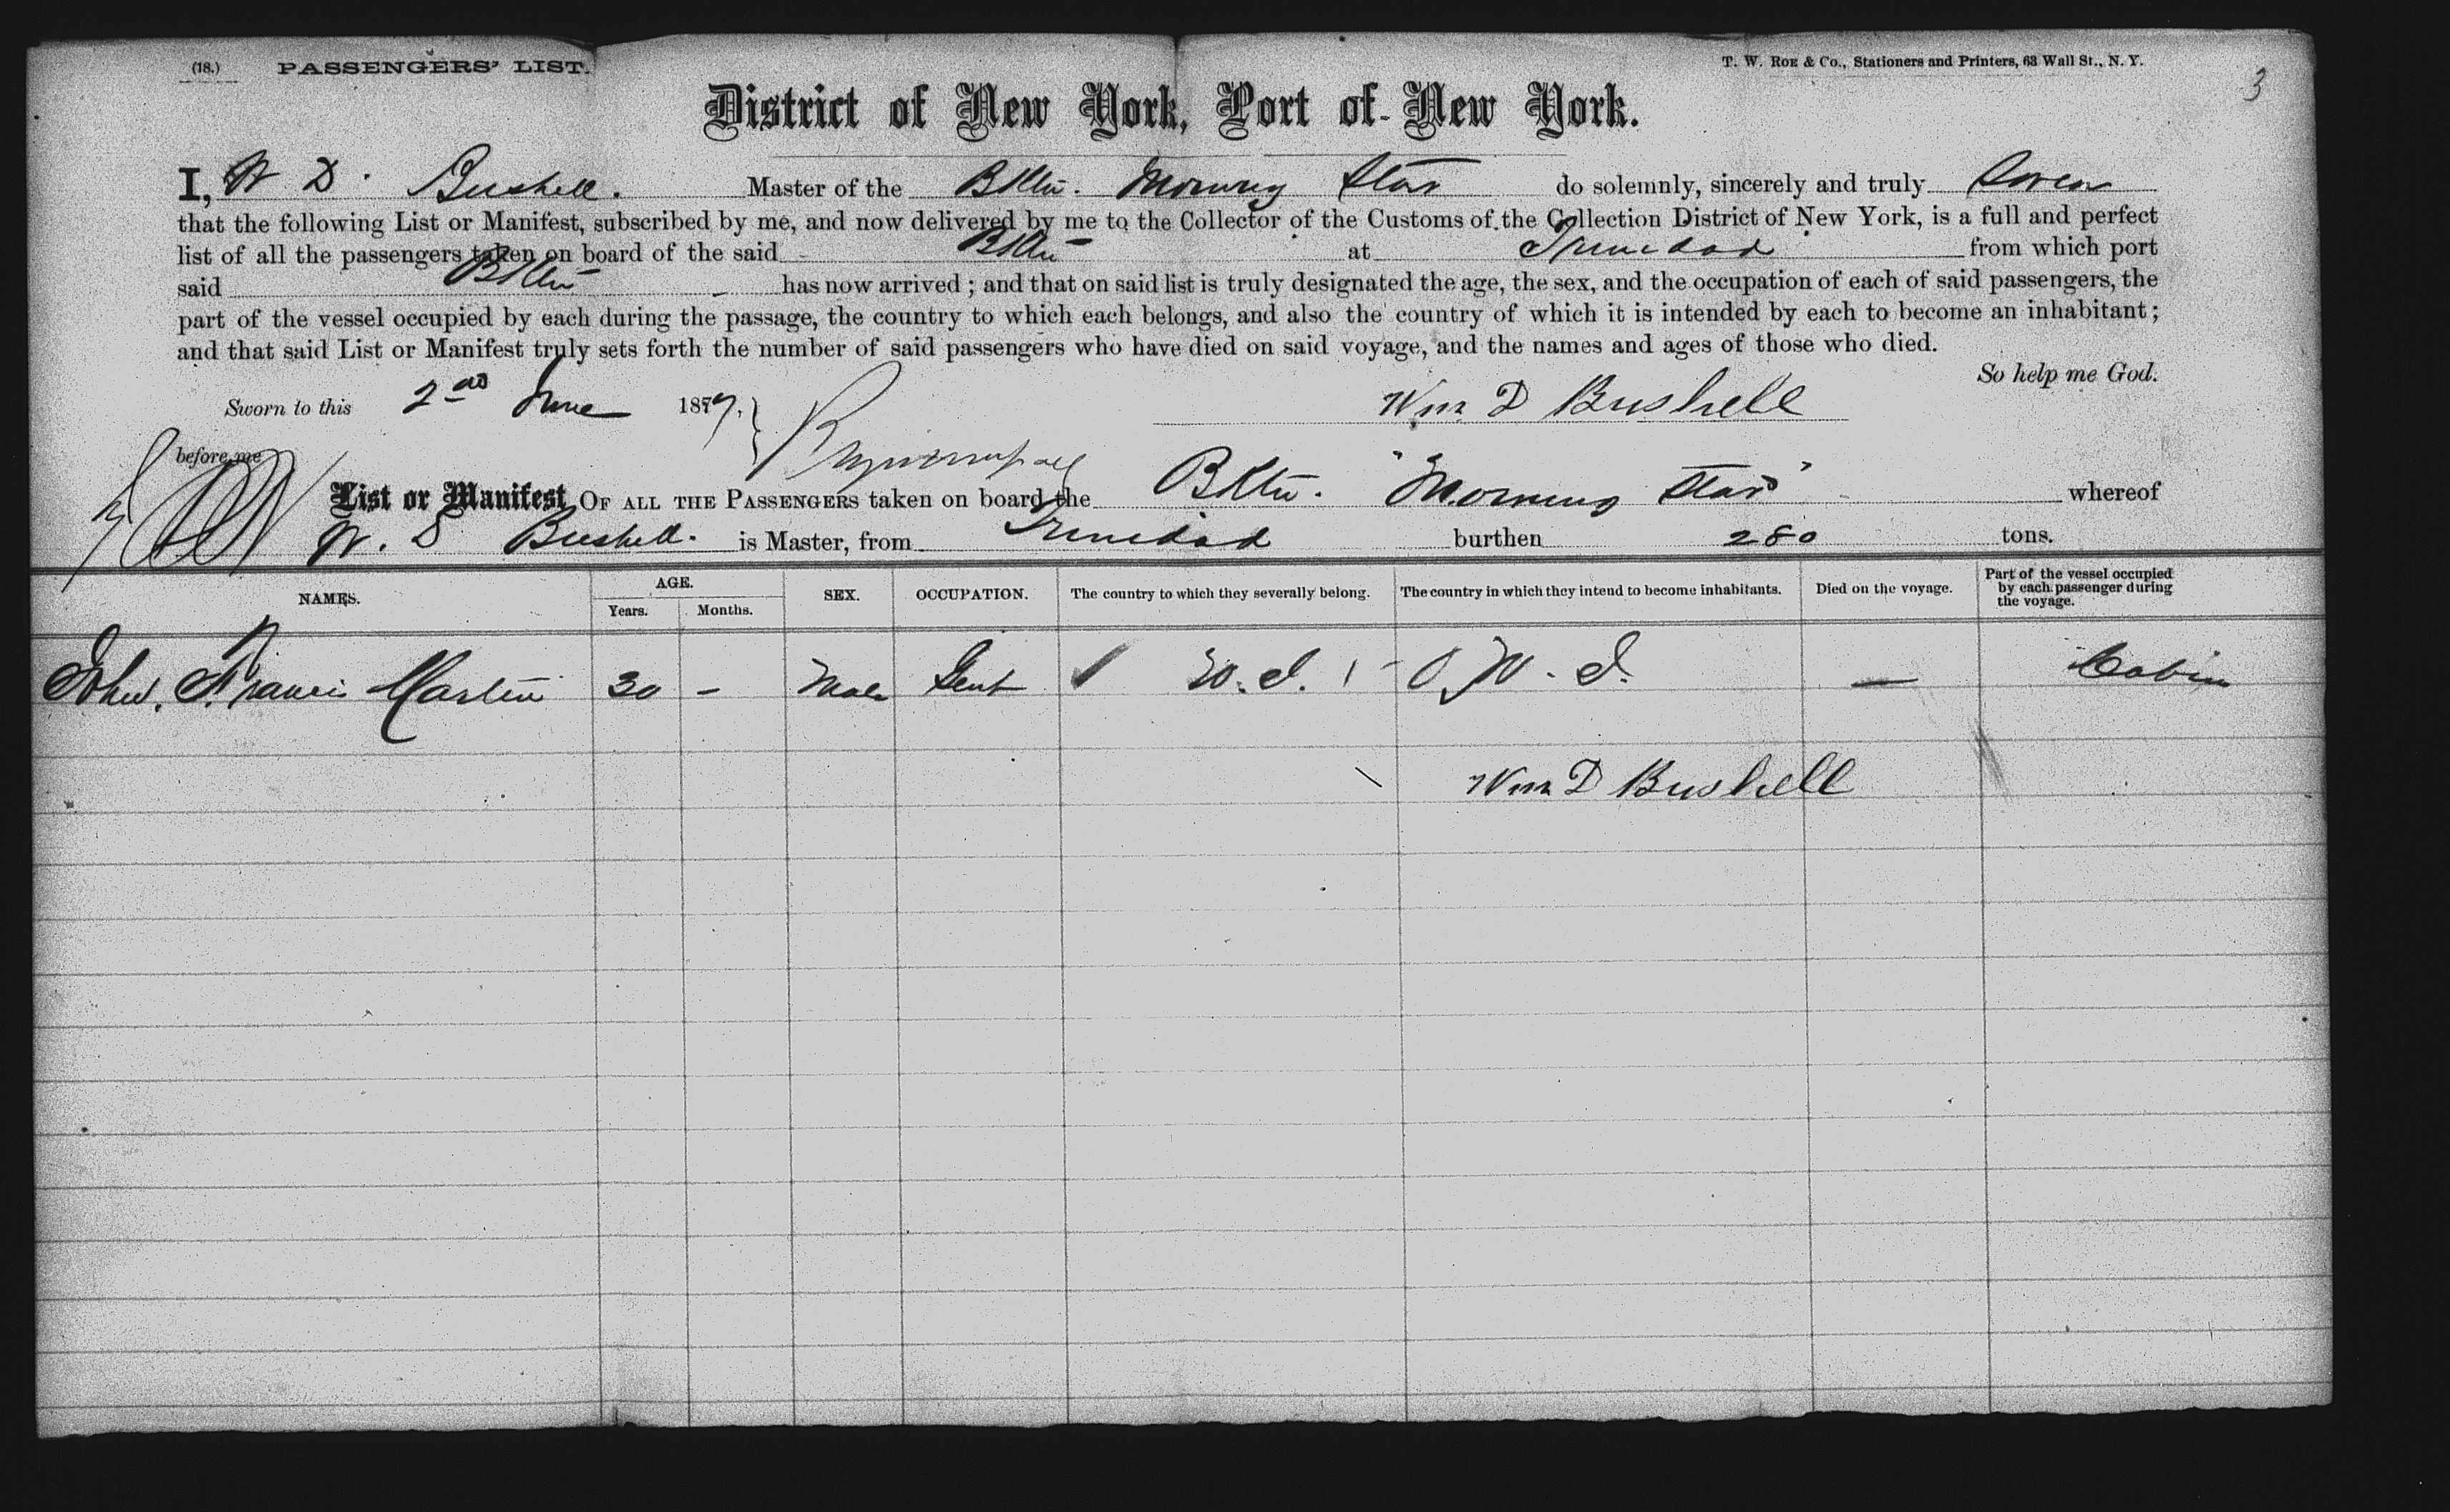 (18.) PASSENGERS' LIST.
T. W. ROE & Co., Stationers and Printers, 63 Wall St., N. Y.
3
District of New York, Port of New York.
I, W D. Bushell. Master of the Bktn. Morning Star do solemnly, sincerely and truly Swear
that the following List or Manifest, subscribed by me, and now delivered by me to the Collector of the Customs of the Collection District of New York, is a full and perfect
list of all the passengers taken on board of the said Bktn at Trinidad from which port
said Bktn has now arrived; and that on said list is truly designated the age, the sex, and the occupation of each of said passengers, the
part of the vessel occupied by each during the passage, the country to which each belongs, and also the country of which it is intended by each to become an inhabitant;
and that said List or Manifest truly sets forth the number of said passengers who have died on said voyage, and the names and ages of those who died.
So help me God.
Sworn to this 2nd June 1877,
Wm D Bushell
before me
List or Manifest OF ALL THE PASSENGERS taken on board the Bktn. "Morning Star" whereof
W. D Bushell. is Master, from Trinidad burthen 280 tons.
NAMES. AGE. Years. Months. SEX. OCCUPATION. The country to which they severally belong. The country in which they intend to become inhabitants. Died on the voyage. Part of the vessel occupied by each passenger during the voyage.
John. Francis Martin 30 - Male Gent W. I. W. I. — Cabin
Wm D Bushell